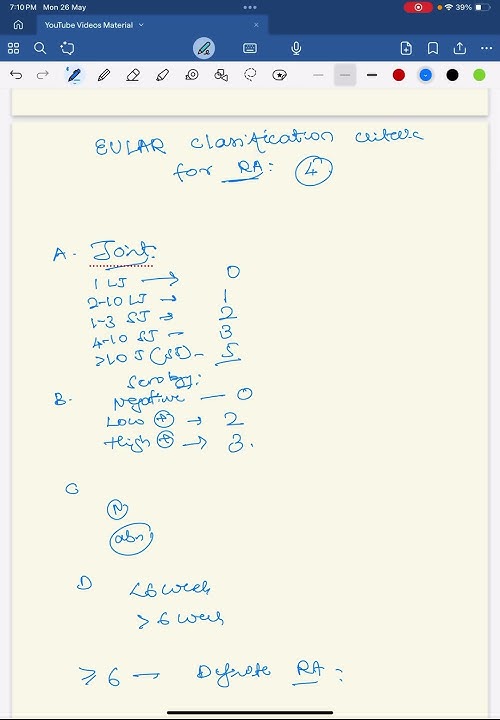 7:10 PM Mon 26 May
39%
YouTube Videos Material
EULAR Classification criteria
for RA: 4
A. Joint:
1 LJ → 0
2-10 LJ → 1
1-3 SJ → 2
4-10 SJ – 3
>10 J (SJ) – 5
Serology:
B.
Negative — 0
Low + → 2
High + → 3.
C
N
abn
D
<6 week
>6 week
≥ 6 — Definite RA: